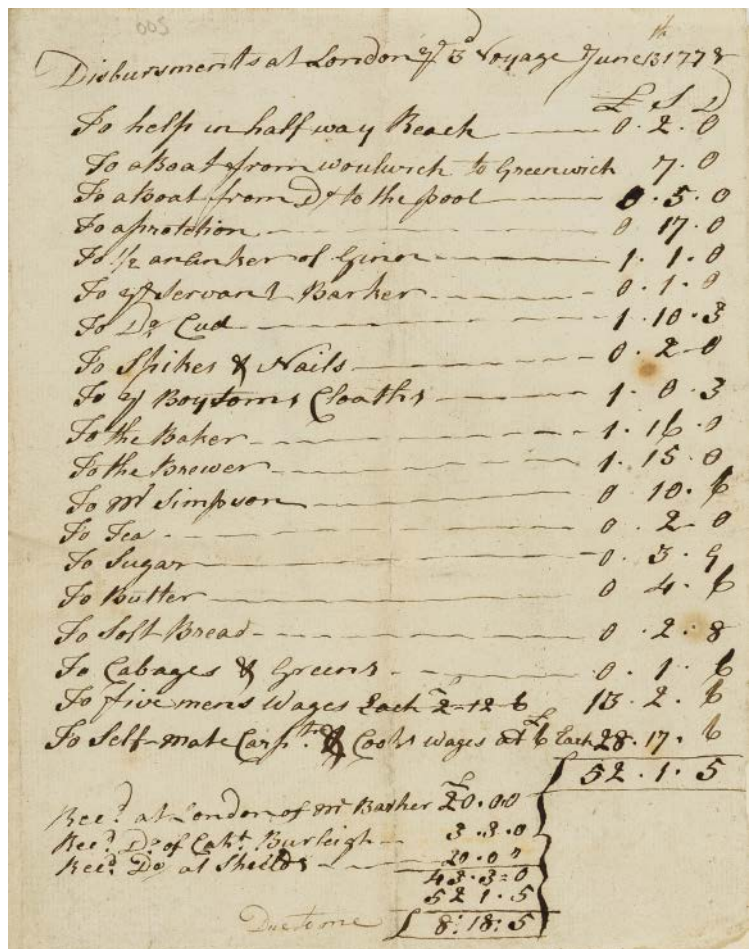 005
Disbursments at London ye 3d Voyage June 13th 1778
£ S D
To help in half way Reach 0 . 2 . 0
To a Boat from woulwich to Greenwich 7 . 0
To a Boat from Do to the pool 0 . 5 . 0
To a protetion 0 17 . 0
To 1/2 an anker of 1 . 1 . 0
To ye Servant Barker 0 . 1 . 0
To Do Cud 1 . 10 . 3
To Spikes & Nails 0 . 2 - 0
To ye Boy Toms Cloaths 1 . 0 . 3
To the Baker 1 . 16 . 0
To the Brewer 1 . 15 . 0
To Mr Simpson 0 10 . 6
To Tea 0 . 2 - 0
To Sugar 0 . 3 . 9
To Butter 0 4 . 6
To Soft Bread 0 . 2 . 8
To Cabages & Greens 0 . 1 . 6
To five mens Wages Each £2=12=6 13 . 2 . 6
To Self-mate Carptr & Cooks wages at £ 6 Each 28 . 17 . 6
52 . 1 . 5
Recd at London of Mr Barker £20.0.0
Recd Do of Capt Burleigh 3 . 3 . 0
Recd Do at Sheilds 20 . 0 "
43 . 3 = 0
52 1 . 5
Due to me 8 : 18 : 5